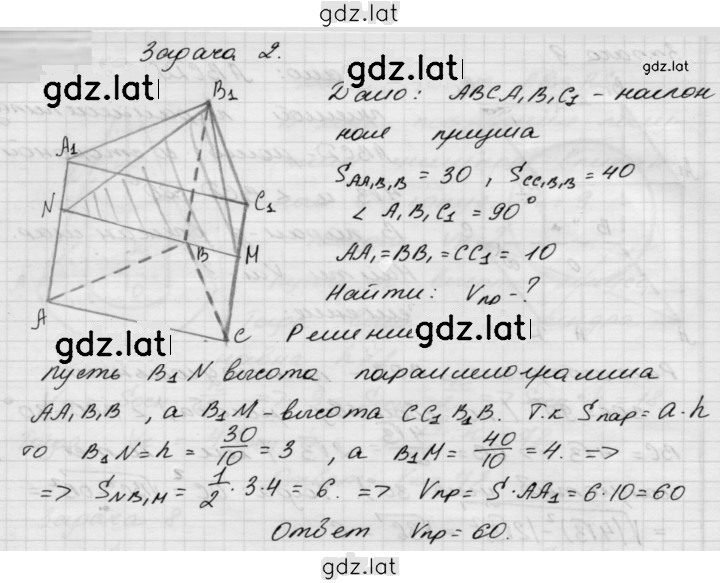 gdz.lat
Задача 2.
gdz.lat
gdz.lat
Дано: ABCA₁B₁C₁ – наклон
ное призма
S_AA₁B₁B = 30, S_CC₁B₁B = 40
∠ A₁B₁C₁ = 90°
AA₁ = BB₁ = CC₁ = 10
Найти: Vпр – ?
B₁
A₁
N
C₁
B
M
A
C
Решение
gdz.lat
gdz.lat
пусть B₁N высота параллелограмма
AA₁B₁B, а B₁M – высота CC₁B₁B. Т.к Sпар = a·h
то B₁N = h = 30/10 = 3, а B₁M = 40/10 = 4. =>
=> S_NB₁M = 1/2 · 3·4 = 6. => Vпр = S·AA₁ = 6·10 = 60
Ответ Vпр = 60.
gdz.lat